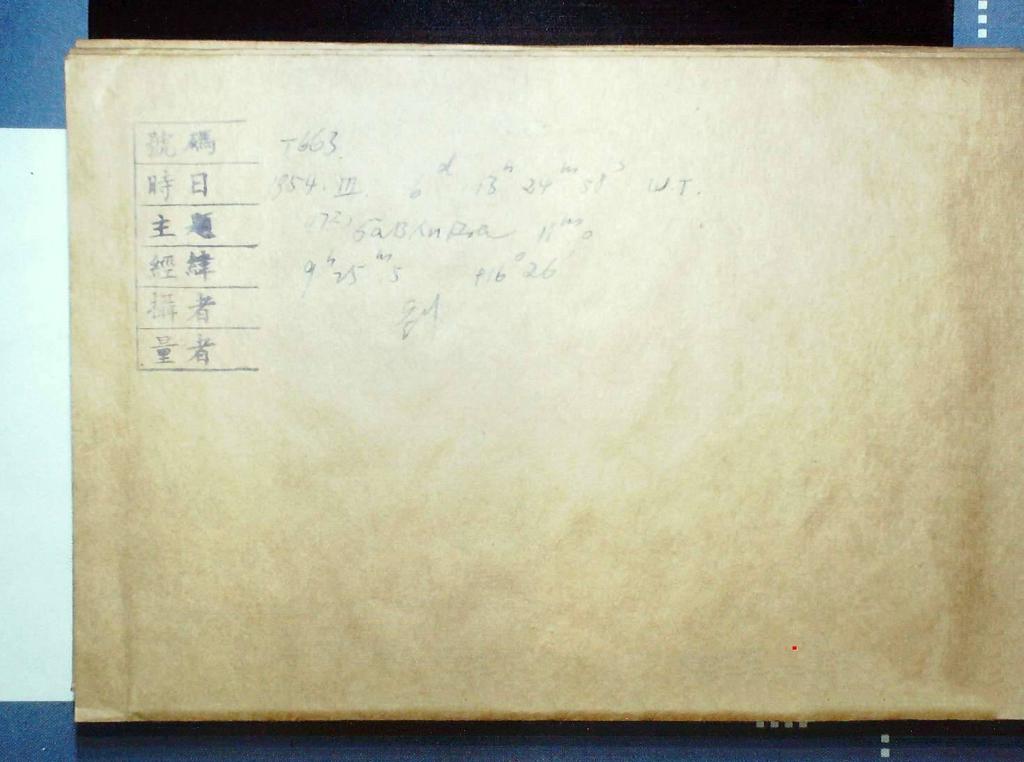 號碼 T663.
時日 1954. III. 6ᵈ 13ʰ 24ᵐ 58ˢ U.T.
主題 11ᵐ.0
經緯 9ʰ 25ᵐ.5 +16° 26′
攝者
量者